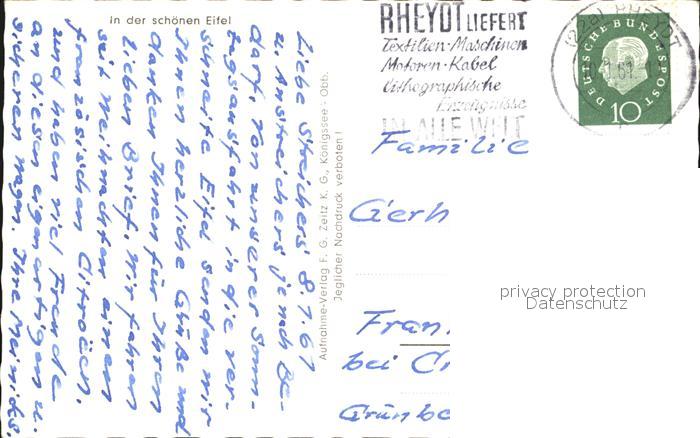 In der schönen Eifel
Liebe Streichers 8.1.61
u. Anstreichers jenach Be-
darf, von unserer Sonn-
tagsausfahrt in die ver-
schneite Eifel senden wir
Ihnen herzliche Grüße und
danken Ihnen für Ihren
lieben Brief. Wir fahren
seit Weihnachten einen
französischen Citroёn.
und haben viel Freude
an diesem eigenartigen u.
sicheren Wagen. Ihre
Aufnahme-Verlag F. G. Zeitz K. G., Königssee - Obb.
Jeglicher Nachdruck verboten!
RHEYDT LIEFERT
Textilien-Maschinen
Motoren-Kabel
Lithographische
Erzeugnisse
IN ALLE WELT
RHEYDT
61
DEUTSCHE BUNDESPOST
10
Familie
Gerh
Fran
bei
Grünbe
privacy protection
Datenschutz